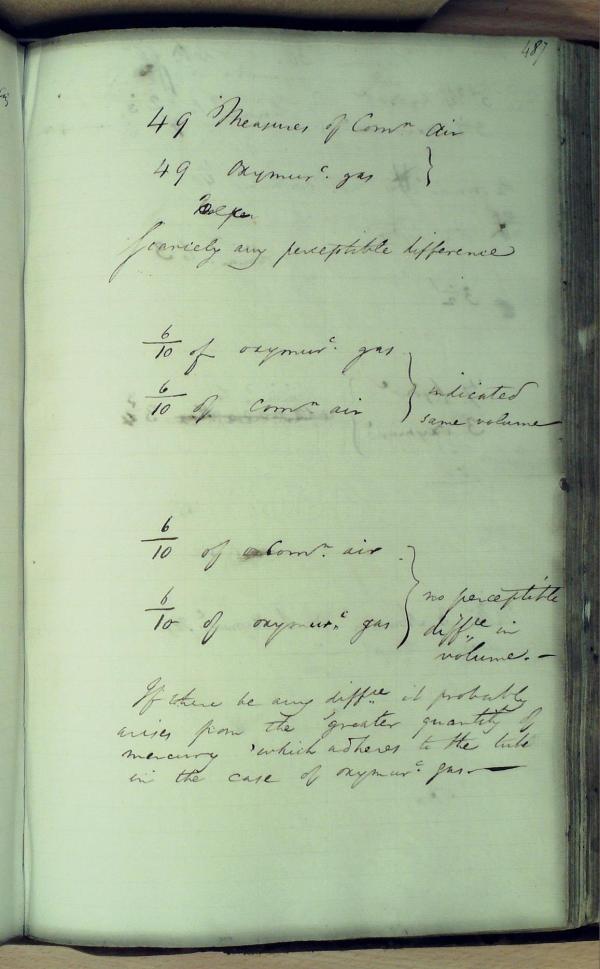 487
49 Measures of Comn air
49 oxymurc. gas
Scarcely any perceptible difference
6/10 of oxymurc. gas
6/10 of Comn air
indicated
same volume
6/10 of Comn. air
6/10 of oxymurc. gas
no perceptible
diffce in
volume. —
If there be any diffce it probably
arises from the greater quantity of
mercury which adheres to the tube
in the case of oxymurc. gas —